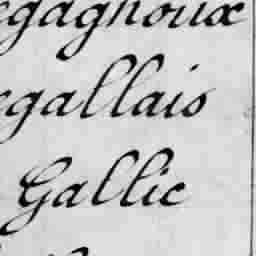 gagnoux
gallais
Gallic